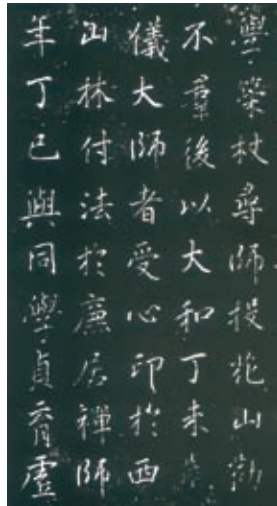 學策杖尋師投花山勸
不羣後以大和丁未
儀大師者受心印於西
山林付法於廉居禪師
年丁巳與同學貞育虛